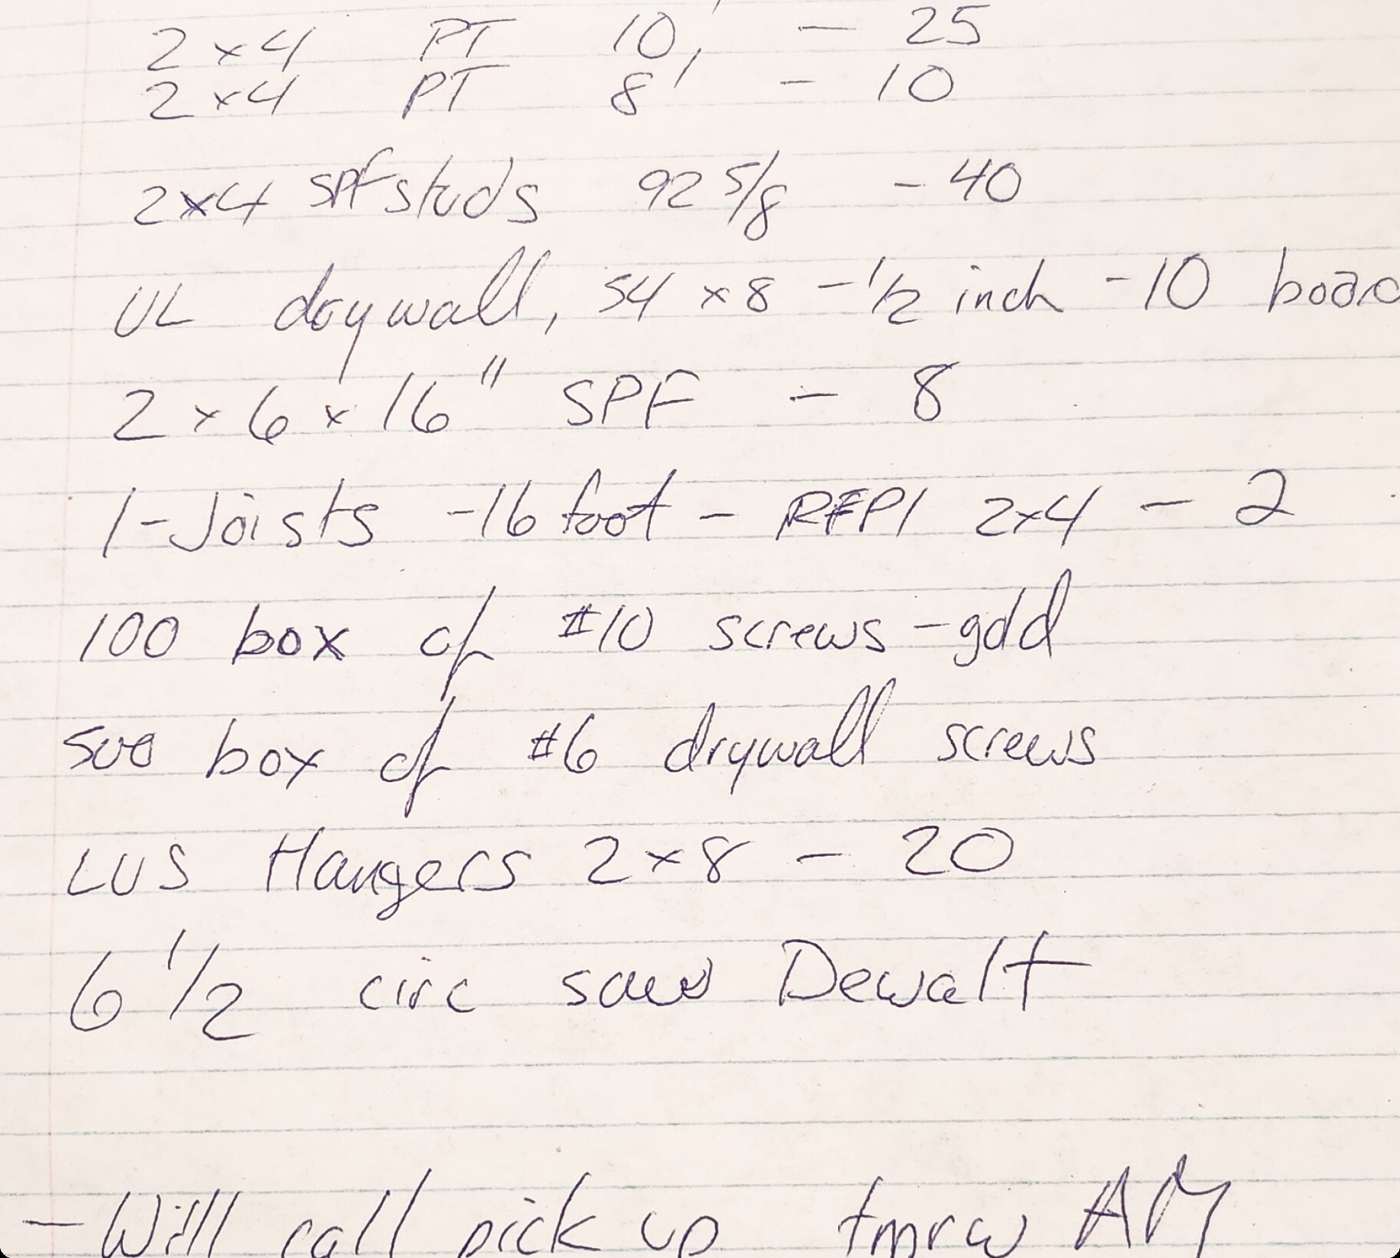 2x4 PT 10' - 25
2x4 PT 8' - 10
2x4 SPF studs 92 5/8 - 40
UL drywall, 54 x 8 - 1/2 inch - 10 board
2 x 6 x 16" SPF - 8
I-Joists - 16 foot - RFPI 2x4 - 2
100 box of #10 screws - gold
500 box of #6 drywall screws
LUS Hangers 2x8 - 20
6 1/2 circ saw Dewalt
- Will call pick up tmrw AM